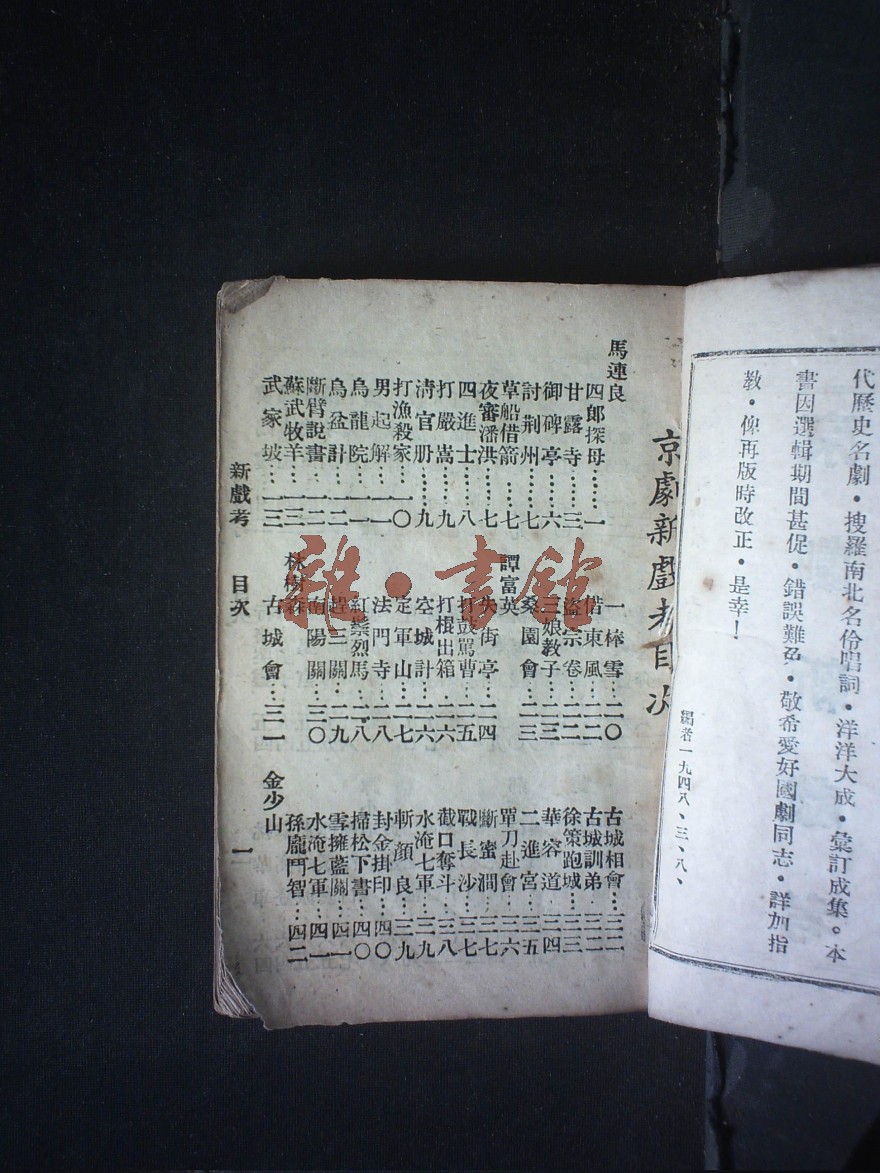 代歷史名劇・搜羅南北名伶唱詞・洋洋大成・彙訂成集。本
書因選輯期間甚促・錯誤難免・敬希愛好國劇同志・詳加指
教・俾再版時改正・是幸!
編者一九四八、三、八、
京劇新戲考目次
馬連良
四郎探母……一
甘露寺……三
御碑亭……六
討荆州……七
草船借箭…七
夜審潘洪…七
四進士……八
打嚴嵩……九
清官册……九
打漁殺家…一〇
男起解…一一
烏龍院…一一
烏盆計…一二
斷臂說書…一二
蘇武牧羊…一三
武家坡…一三
一棒雪…二〇
借東風…二二
盜宗卷…二二
三娘教子…二三
桑園會…二三
譚富英
失街亭…二四
打鼓罵曹…二五
打棍出箱…二六
空城計…二六
定軍山…二七
法門寺…二八
紅鬃烈馬…二八
趕三關…二九
南陽關…三〇
林樹森
古城會…三一
古城相會…三二
古城訓弟…三二
徐策跑城…三三
華容道…三四
二進宮…三五
單刀赴會…三六
斷蜜澗…三七
戰長沙…三七
截口奪斗…三八
水淹七軍…三九
斬顏良…三九
封金掛印…四〇
掃松下書…四〇
雪擁藍關…四一
水淹七軍…四一
金少山
孫龐鬥智…四二
新戲考 目次 一
雜・書館